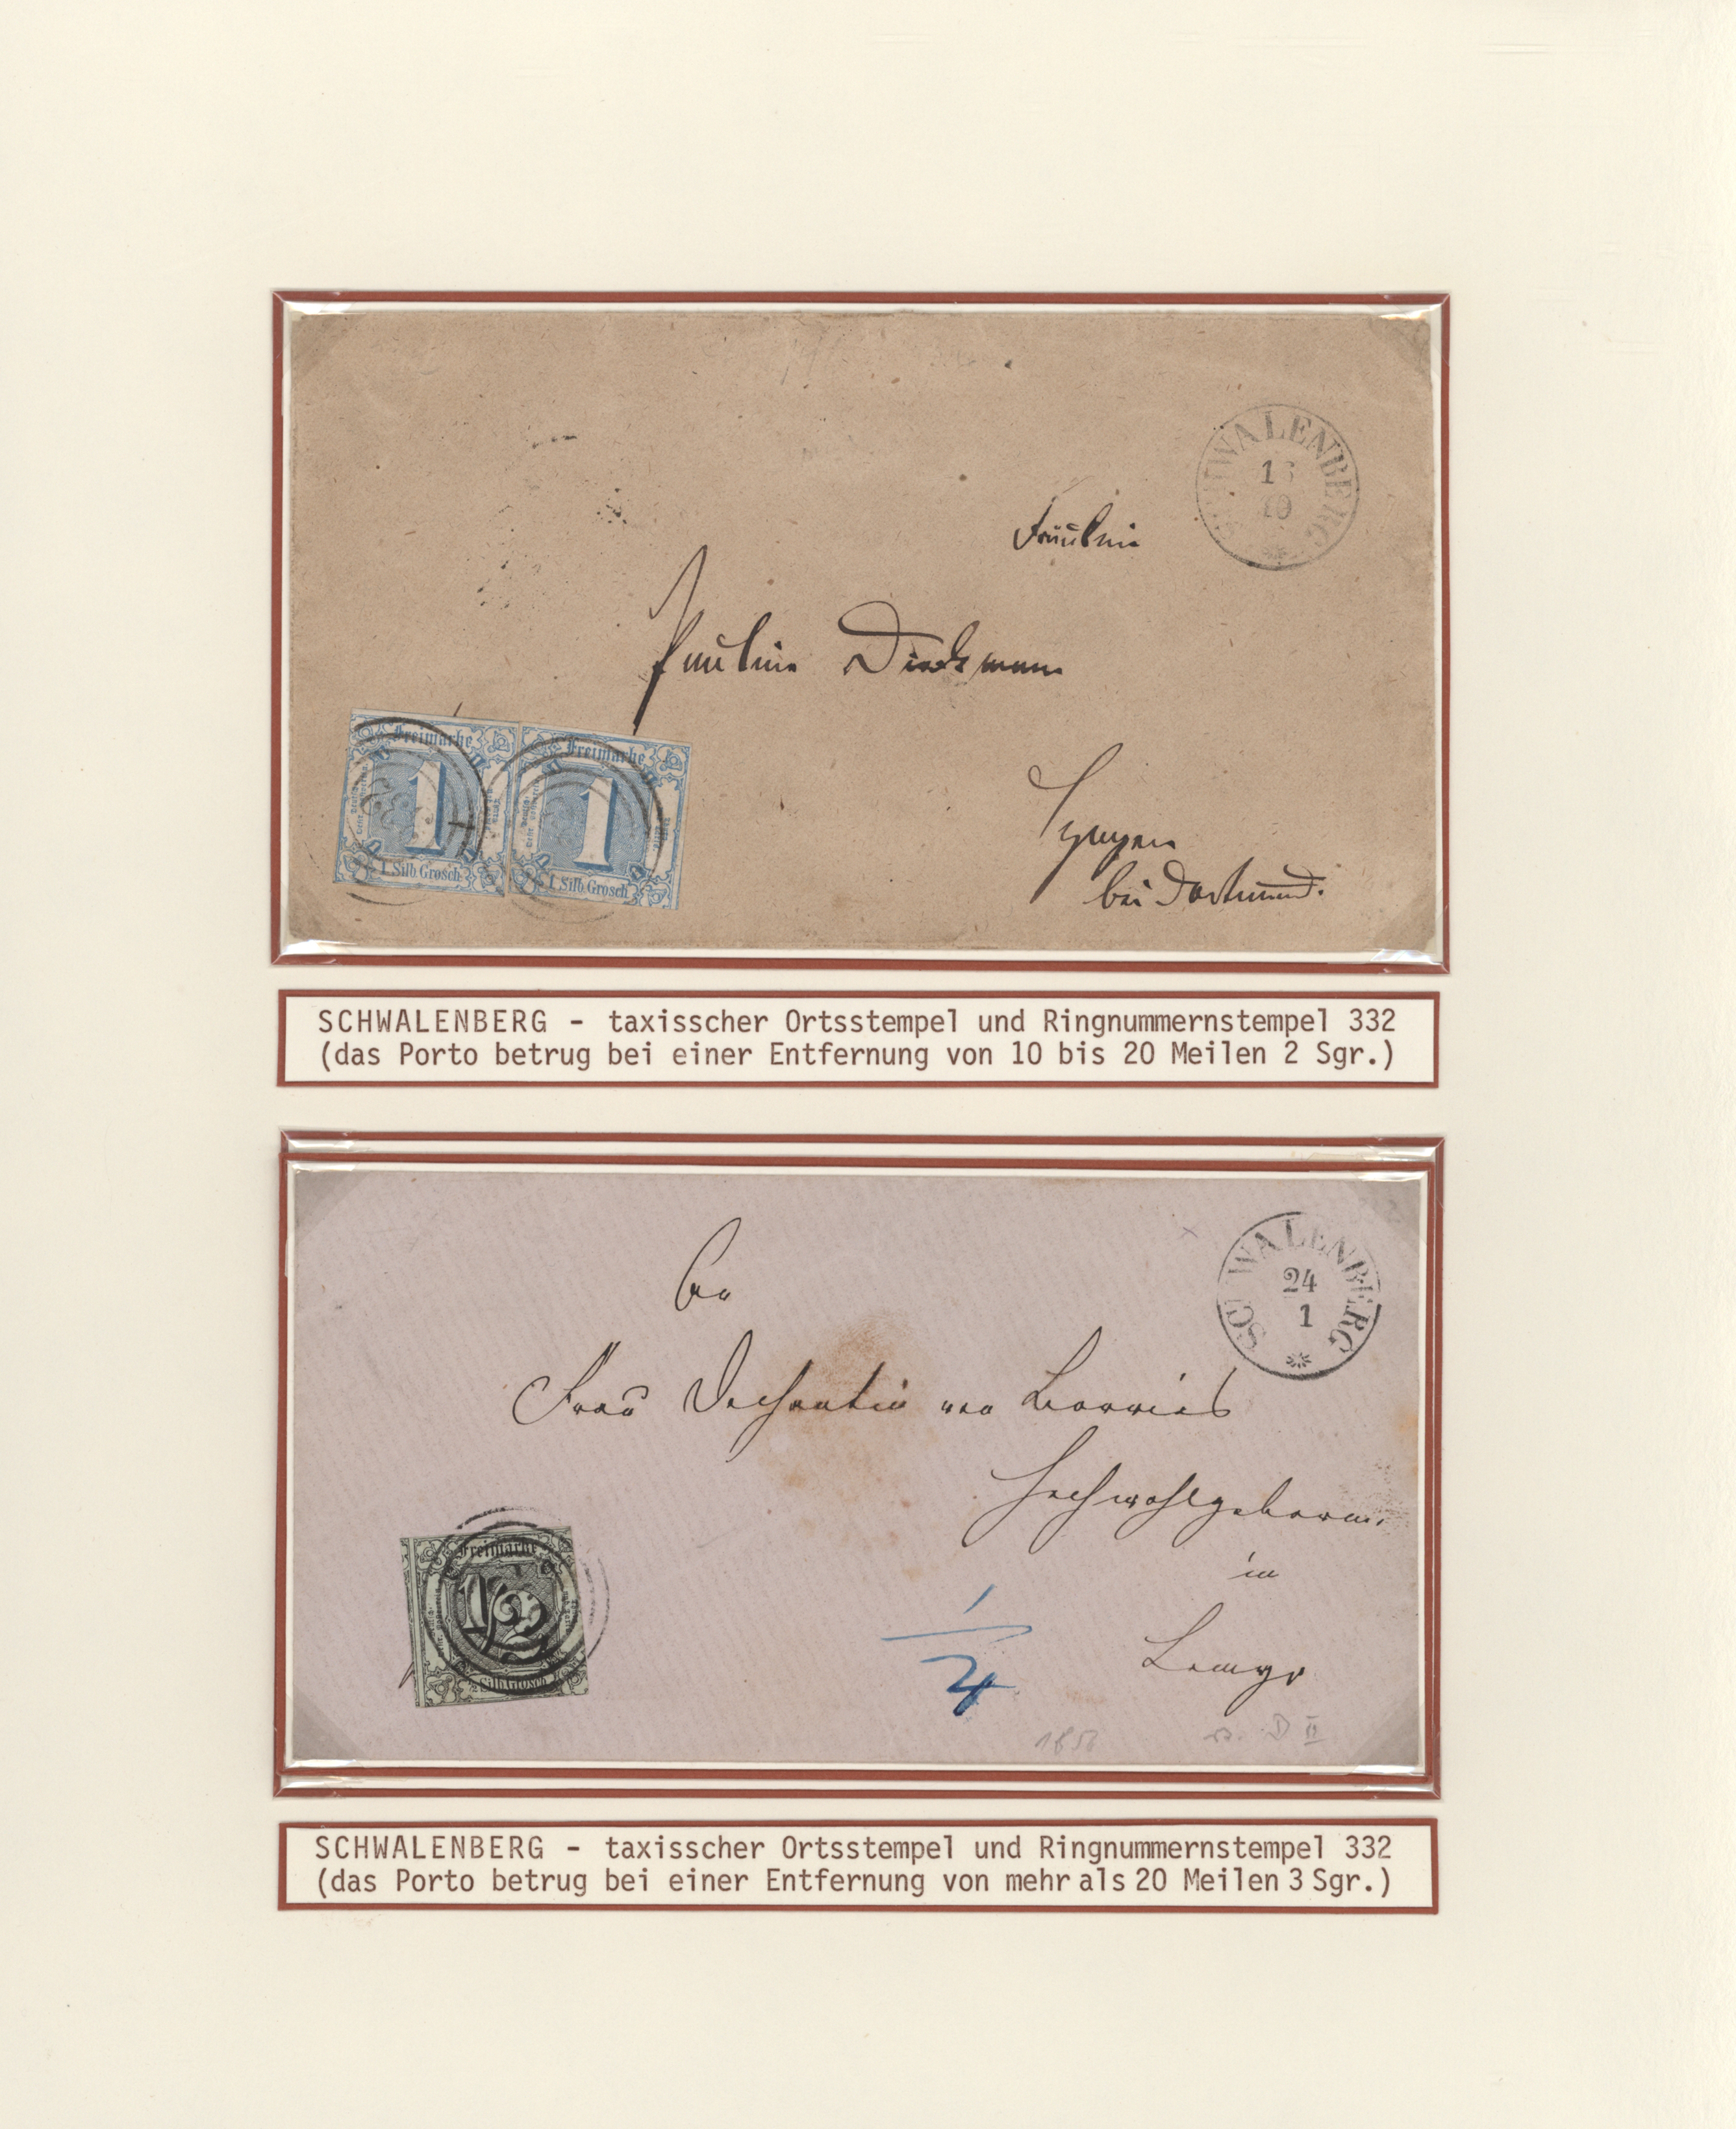 SCHWALENBERG
10
Fräulein
Pauline Dieckmann
bei Dortmund.
Freimarke
1
1 Silb. Grosch.
Freimarke
1
1 Silb. Grosch.
SCHWALENBERG – taxisscher Ortsstempel und Ringnummernstempel 332
(das Porto betrug bei einer Entfernung von 10 bis 20 Meilen 2 Sgr.)
SCHWALENBERG
24
1
An
Frau Dechantin von Borries
Hochwohlgeboren.
in
Lemgo
Freimarke
1/2
1/2 Silb. Grosch.
SCHWALENBERG – taxisscher Ortsstempel und Ringnummernstempel 332
(das Porto betrug bei einer Entfernung von mehr als 20 Meilen 3 Sgr.)